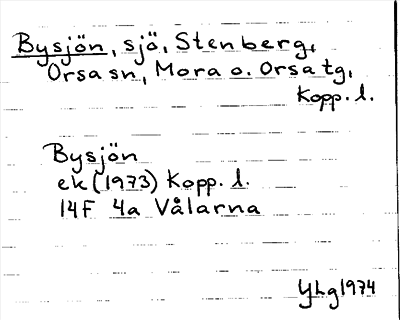 Bysjön, sjö, Stenberg,
Orsa sn, Mora o. Orsa tg,
Kopp. l.
Bysjön
ek (1973) Kopp. l.
14F 4a Vålarna
YLg 1974